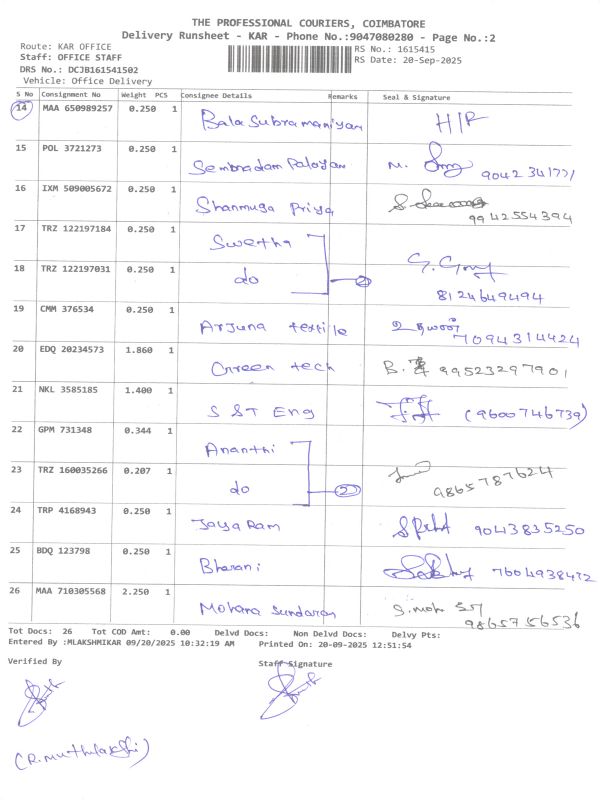 THE PROFESSIONAL COURIERS, COIMBATORE
Delivery Runsheet - KAR - Phone No.:9047080280 - Page No.:2
Route: KAR OFFICE
RS No.: 1615415
Staff: OFFICE STAFF
RS Date: 20-Sep-2025
DRS No.: DCJB161541502
Vehicle: Office Delivery
S No Consignment No Weight PCS Consignee Details Remarks Seal & Signature
14 MAA 650989257 0.250 1 Bala Subramaniyan H/R
15 POL 3721273 0.250 1 Sembradam Palayam 9042341771
16 IXM 509005672 0.250 1 Shanmuga Priya 9942554394
17 TRZ 122197184 0.250 1 Swetha
18 TRZ 122197031 0.250 1 do 2 8124649494
19 CMM 376534 0.250 1 Arjuna textile 7094314424
20 EDQ 20234573 1.860 1 Green tech 99523297901
21 NKL 3585185 1.400 1 S S T Eng (9600746739)
22 GPM 731348 0.344 1 Ananthi
23 TRZ 160035266 0.207 1 do 2 9865787624
24 TRP 4168943 0.250 1 Jaya Ram 9043835250
25 BDQ 123798 0.250 1 Bharani 7604938472
26 MAA 710305568 2.250 1 Mohana Sundaram 9865756536
Tot Docs: 26 Tot COD Amt: 0.00 Delvd Docs: Non Delvd Docs: Delvy Pts:
Entered By :MLAKSHMIKAR 09/20/2025 10:32:19 AM Printed On: 20-09-2025 12:51:54
Verified By Staff Signature
(R.muthulakshi)